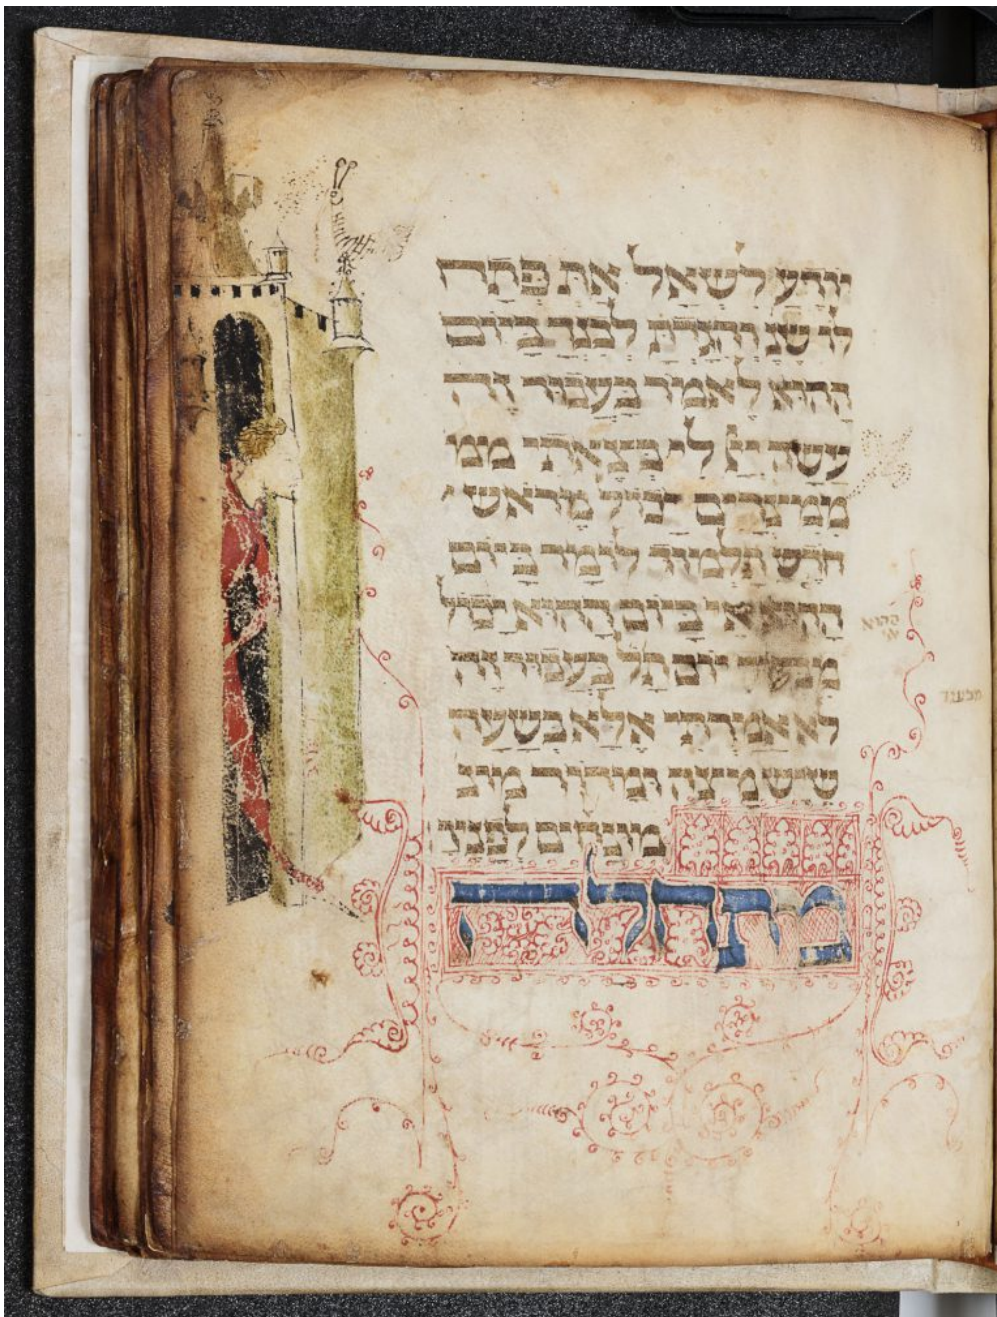 יודע לשאל את פתח
לו שנ והגדת לבנך ביום
ההוא לאמר בעבור זה
עשה יי לי בצאתי ממ
ממצרים יכול מראש
חדש תלמוד לומר ביום
ההוא אי ביום ההוא יכול
מבעוד יום תל בעבור זה
לא אמרתי אלא בשעה
שיש מצה ומרור מונ
מונחים לפניך
מתחלה
ההוא
אי
מבעוד